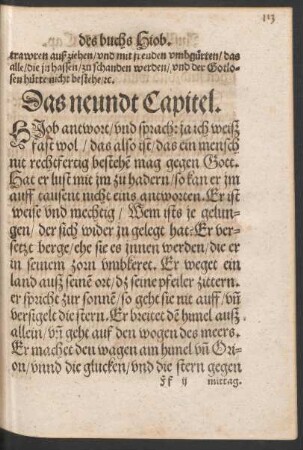 113
des buchs Hiob.
trawren auß ziehen/ vnd mit freuden vmbgürten/ das
alle/ die jn hassen/ zu schanden werden/ vnd der Gotlo-
sen hütte nicht bestehe/ ꝛc.
Das neundt Capitel.
HJob antwort/ vnd sprach: ja ich weiß
fast wol/ das also ist/ das ein mensch
nit rechtfertig bestehe mag gegen Gott.
Hat er lust mit jm zu hadern/ so kan er jm
auff tausent nicht eins antworten. Er ist
weise vnd mechtig/ Wem ists je gelun-
gen/ der sich wider jn gelegt hat: Er ver-
setzt berge/ ehe sie es jnnen werden/ die er
in seinem zorn vmbkeret. Er weget ein
land auß seinē ort/ dz seine pfeiler zittern.
er spricht zur sonnē/ so gehet sie nit auff/ vñ
versigelt die stern. Er breitet dē himel auß
allein/ vñ geht auff den wogen des meers.
Er machet den wagen am himel vñ Ori-
on/ vnnd die glucken/ vnd die stern gegen
ij mittag.